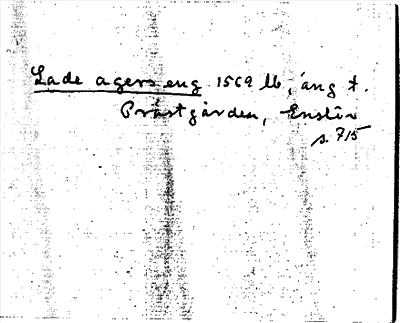 Lade agers eng 1569 lb, äng t.
Prästgården, Enslöv
s. 715